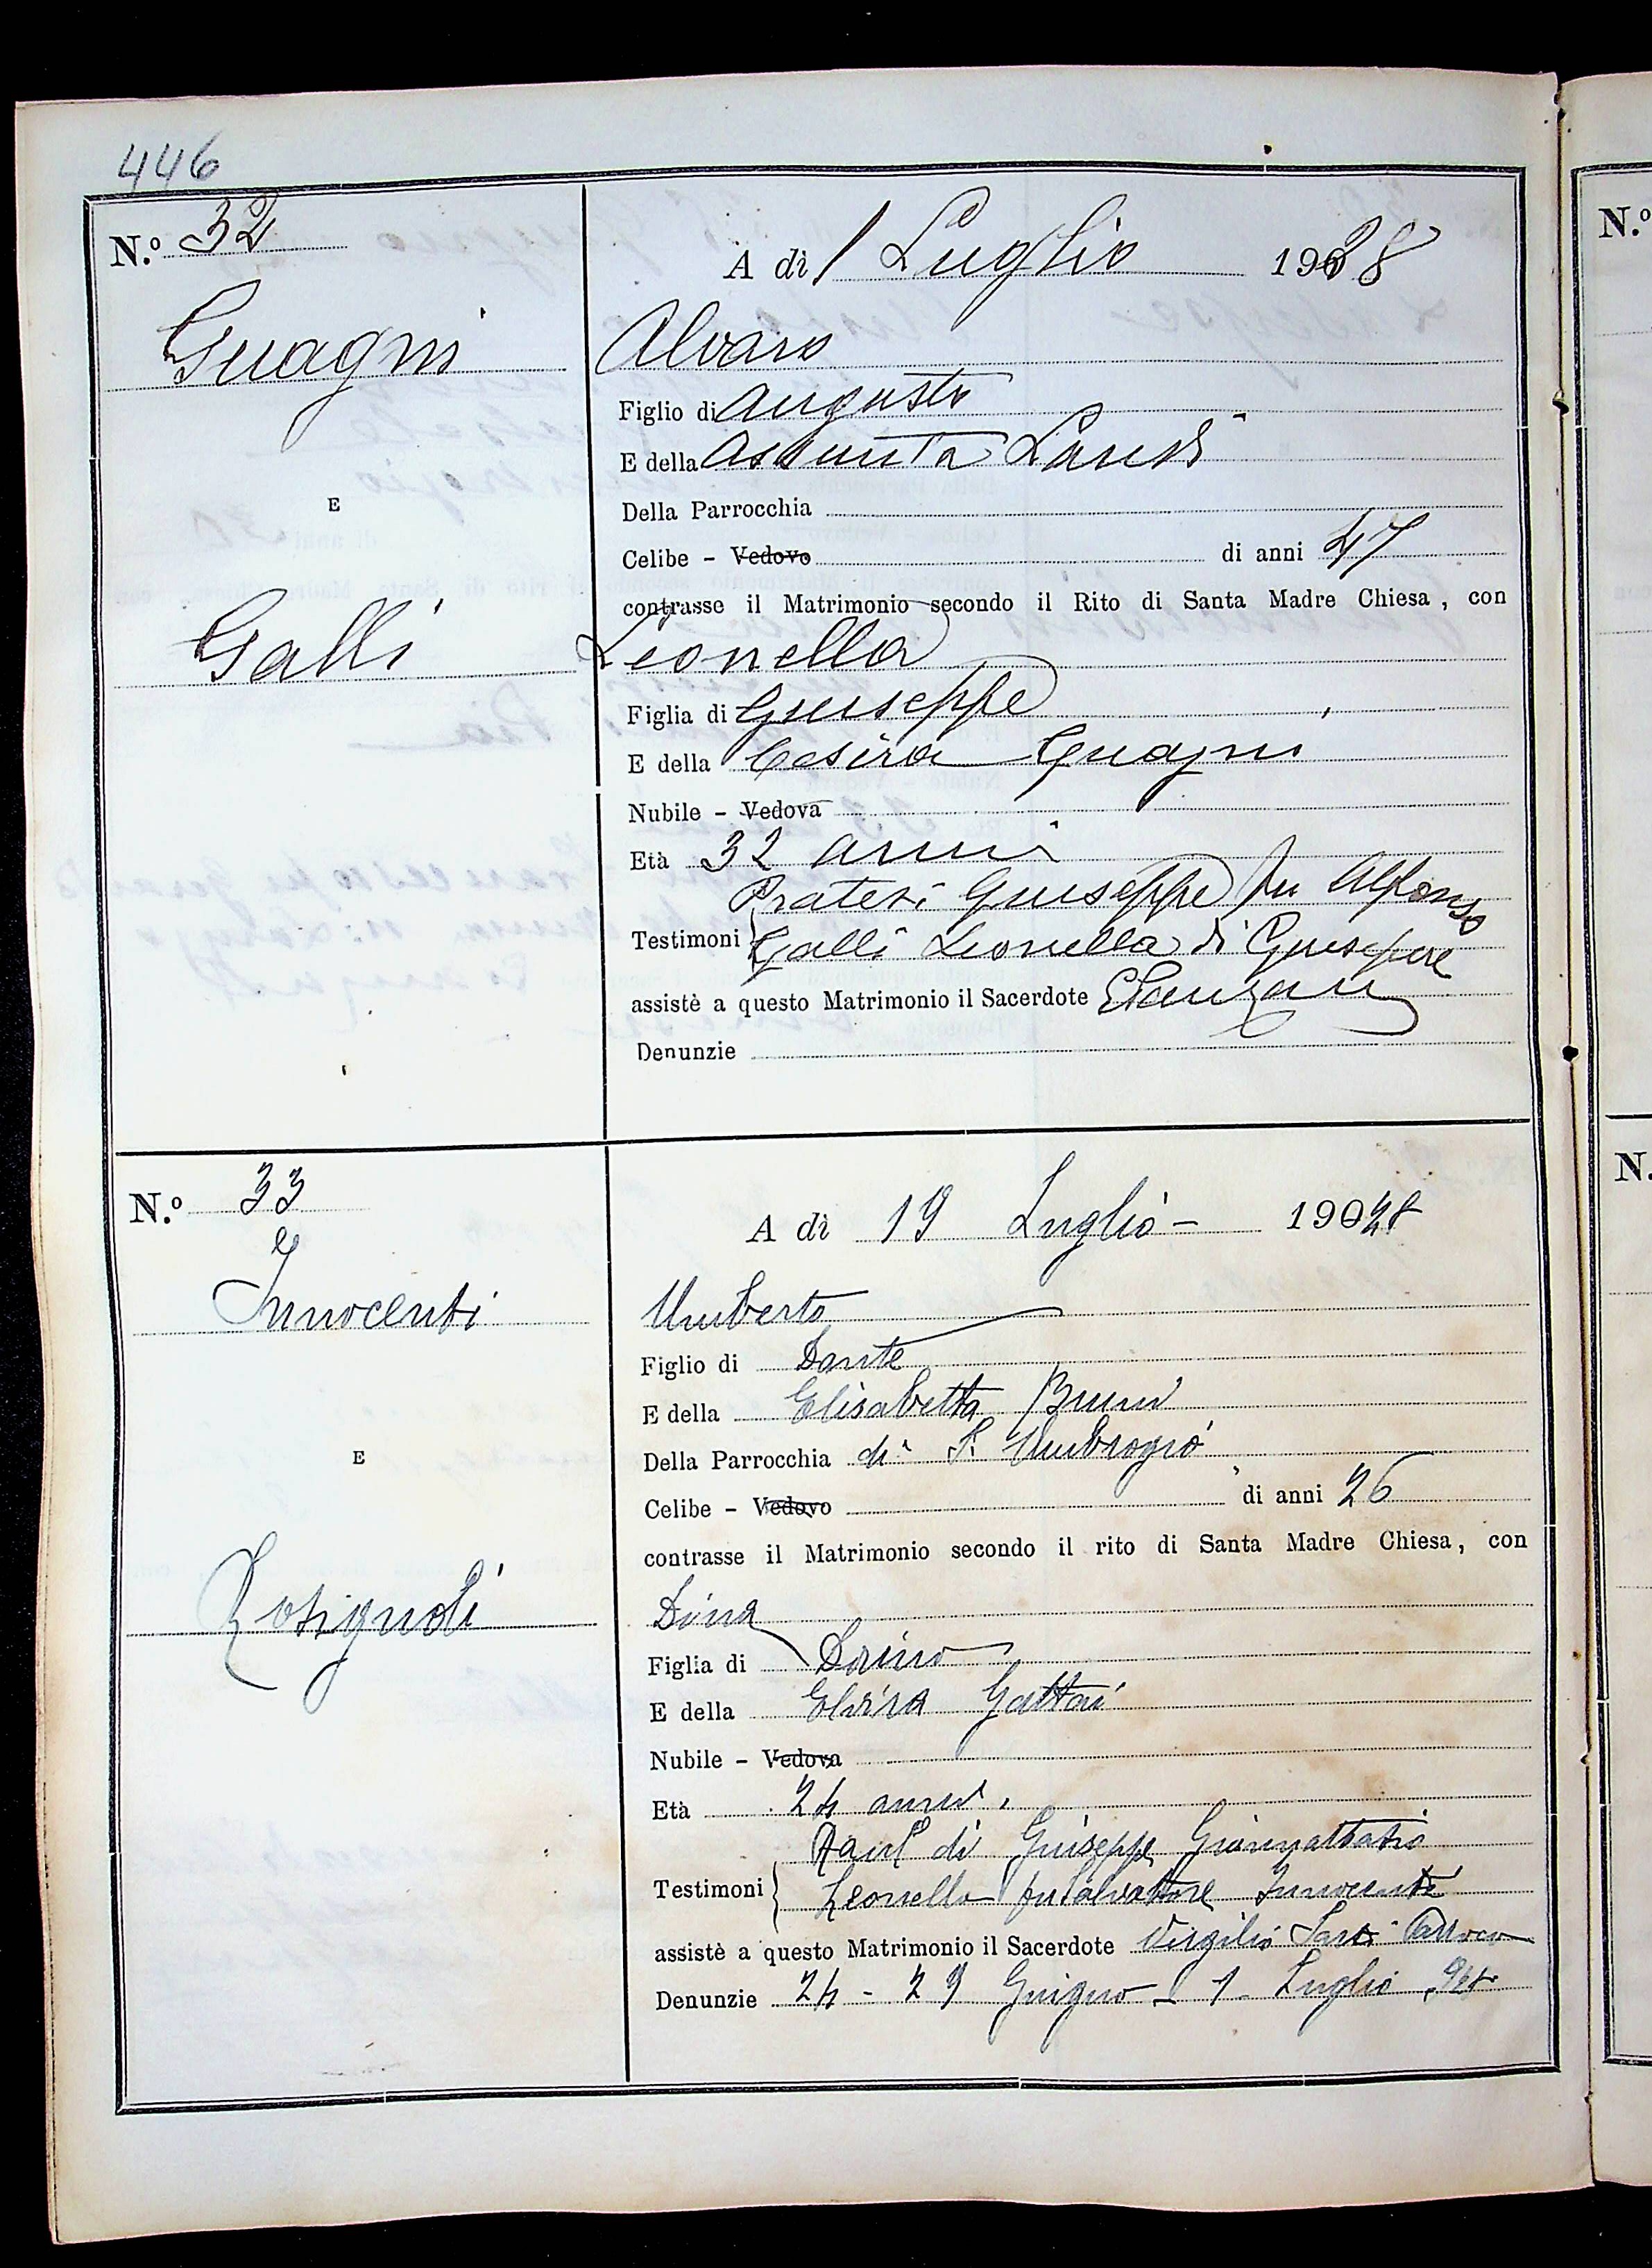 446
N.º 32
A dì 1 Luglio 1928
Guagni
Alvaro
Figlio di Augusto
E della Assunta Landi
E
Della Parrocchia
Celibe - Vedovo di anni 47
contrasse il Matrimonio secondo il Rito di Santa Madre Chiesa, con
Galli
Leonella
Figlia di Giuseppe
E della Cesira Guagni
Nubile - Vedova
Età 32 anni
Pratesi Giuseppe fu Alfonso
Testimoni Galli Leonella di Giuseppe
assistè a questo Matrimonio il Sacerdote
Denunzie
N.º 33
A dì 19 Luglio - 1928
Innocenti
Umberto
Figlio di Dante
E della Elisabetta Bruni
Della Parrocchia di S. Umbrogio
E
Celibe - Vedovo di anni 26
contrasse il Matrimonio secondo il rito di Santa Madre Chiesa, con
Rosignoli
Dina
Figlia di Dorino
E della Elvira Gattai
Nubile - Vedova
Età 24 anni.
di Giuseppe Giannattasio
Testimoni Leonello fu Salvatore Innocenti
assistè a questo Matrimonio il Sacerdote Virgilio Parroco
Denunzie 24 - 29 Giugno - 1 - Luglio 928
N.º
N.